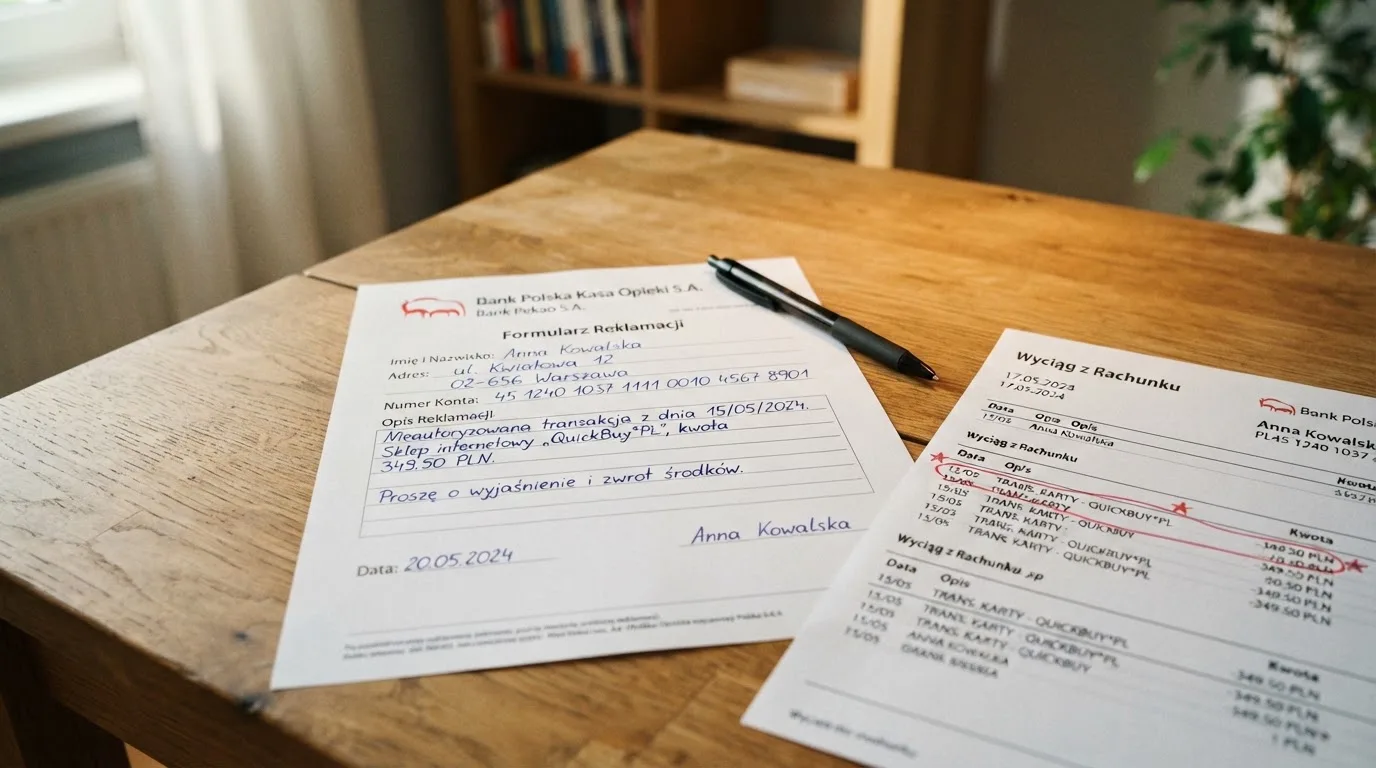 Bank Polska Kasa Opieki S.A.
Bank Pekao S.A.
Formularz Reklamacji
Imię i Nazwisko: Anna Kowalska
Adres: ul. Kwiatowa 12
02-656 Warszawa
Numer Konta: 45 1240 1037 1111 0010 4567 8901
Opis Reklamacji
Nieautoryzowana transakcja z dnia 15/05/2024.
Sklep internetowy „QuickBuy*PL", kwota
349.50 PLN.
Proszę o wyjaśnienie i zwrot środków.
Anna Kowalska
Data: 20.05.2024
Wyciąg z Rachunku
17.05.2024
17.05.2024
Bank Pols
Anna Kowalsk
PL45 1240 1037
Data Opis Opis
15/05 Anna Kowalska
Wyciąg z Rachunku
Data Opis Kwota
TRANS. KARTY - QUICKBUY*PL
15/05 TRANS. KARTY - QUICKBUY 349.50 PLN
15/05 TRANS. KARTY - QUICKBUY*PL
15/05 TRANS. KARTY - QUICKBUY*PL -349.50 PLN
Wyciąg z Rachunku
Data Opis Kwota
15/05 TRANS. KARTY - QUICKBUY*PL -349.50 PLN
15/05 TRANS. KARTY - QUICKBUY -349.50 PLN
15/05 349.50 PLN
15/05 1 PLN